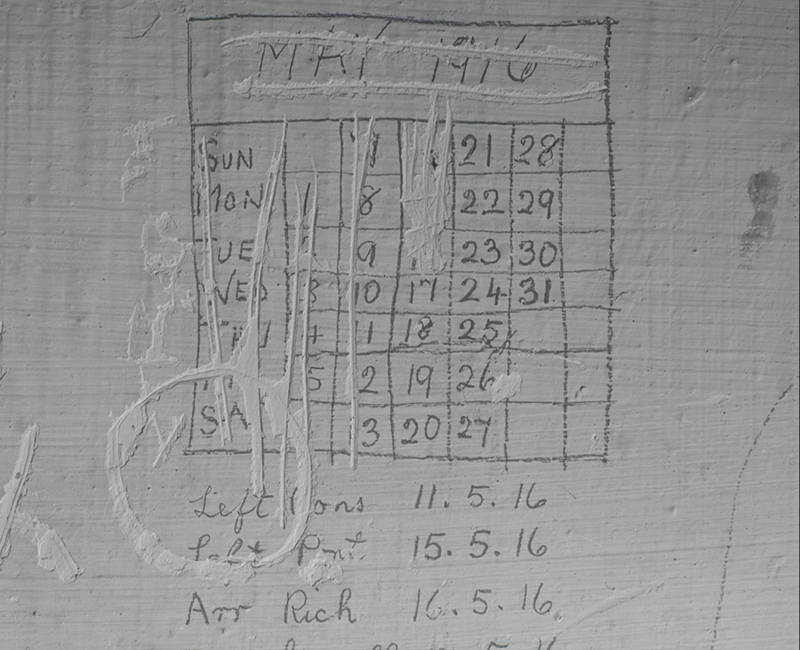 MAY 1916
SUN 7 21 28
MON 1 8 22 29
TUE 9 23 30
WED 3 10 17 24 31
4 11 18 25
5 12 19 26
SA 13 20 27
Left Cons 11.5.16
Left Pont 15.5.16
Arr Rich 16.5.16